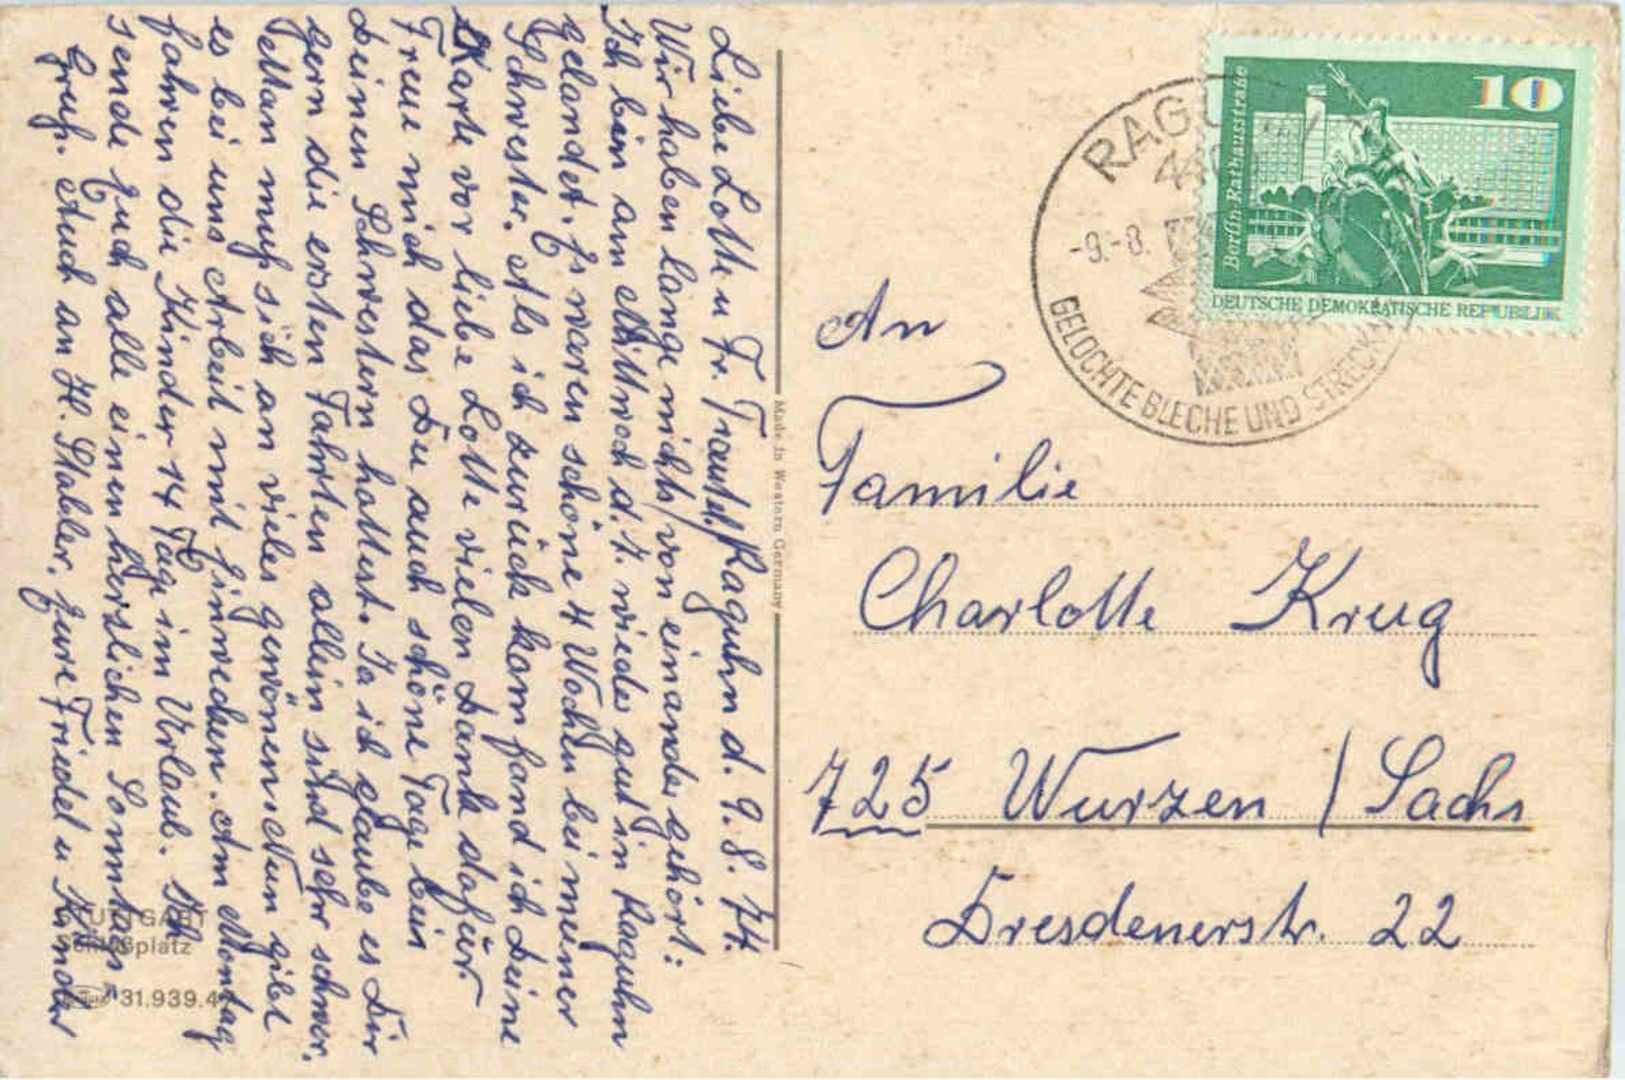 Liebe Lotte u Fr. Trautel! Raguhn d. 9. 8. 74.
Wir haben lange nichts von einander gehört.
Ich bin am Mittwoch d. 7. wieder gut in Raguhn
gelandet. Es waren schöne 4 Wochen bei meiner
Schwester. Als ich zurück kam fand ich Deine
Karte vor liebe Lotte vielen Dank dafür.
Freue mich das Du auch schöne Tage bein
Deinen Schwestern hattest. Ja ich glaube es Dir
gern die ersten Fahrten allein sind sehr schwer.
Man muß sich an vieles gewönen. Nun gibt
es bei uns Arbeit mit Einwecken. Am Montag
fahren die Kinder 14 Tage im Urlaub. Ich
sende Euch alle einen herzlichen Sonntags
Gruß. Auch an H. Stabler. Eure Friedel u Kinder
STUTTGART
Schloßplatz
31.939.4
Made in Western Germany
RAGUHN
440
-9.-8.
GELOCHTE BLECHE UND STRECK
10
Berlin, Rathausstraße
DEUTSCHE DEMOKRATISCHE REPUBLIK
An
Familie
Charlotte Krug
725 Wurzen / Sachs
Dresdenerstr. 22